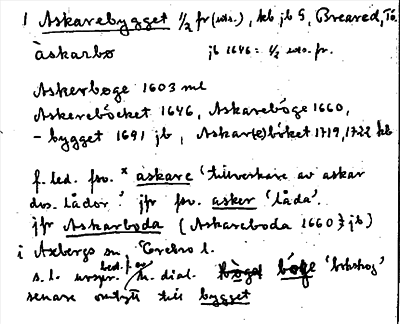 1 Askarebygget 1/2 fr (uts.), kb jb G, Breared, Tö.
àskarbo jb 1646: 1/2 uts. fr.
Askerboge 1603 ml
Askereböcket 1646, Askareböge 1660,
- bygget 1691 jb, Askar(e)böket 1719, 1722 kb
f. led. fsv. * askare 'tillverkare av askar
dvs. lådor.' jfr fsv. asker 'låda'.
jfr Askarboda (Askareboda 1660 jb)
i Axbergs sn, Örebro l.
s. l. urspr. bed. f. av dial. böge 'bokskog'
senare omtytt till bygget